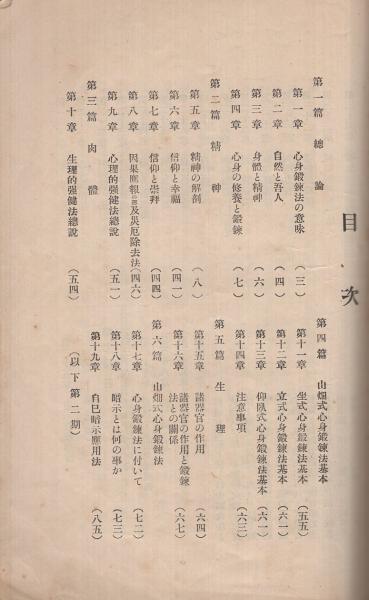 目次
第一篇 總論
第一章 心身鍛錬法の意味 (三)
第二章 自然と吾人 (四)
第三章 身體と精神 (六)
第四章 心身の修養と鍛錬 (七)
第二篇 精神
第五章 精神の解剖 (八)
第六章 信仰と幸福 (四一)
第七章 信仰と崇拜 (四四)
第八章 因果應報及災厄除去法 (四六)
第九章 心理的强健法總說 (五一)
第三篇 肉體
第十章 生理的强健法總說 (五四)
第四篇 山畑式心身鍛錬法基本
第十一章 坐式心身鍛錬法基本 (五五)
第十二章 立式心身鍛錬法基本 (六一)
第十三章 仰臥式心身鍛錬法基本 (六一)
第十四章 注意事項 (六三)
第五篇 生理
第十五章 諸器官の作用 (六四)
第十六章 諸器官の作用と鍛錬
法との關係 (六七)
第六篇 山畑式心身鍛錬法
第十七章 心身鍛錬法に付いて (七二)
第十八章 暗示とは何の事か (七三)
第十九章 自己暗示應用法 (八五)
(以下第二期)